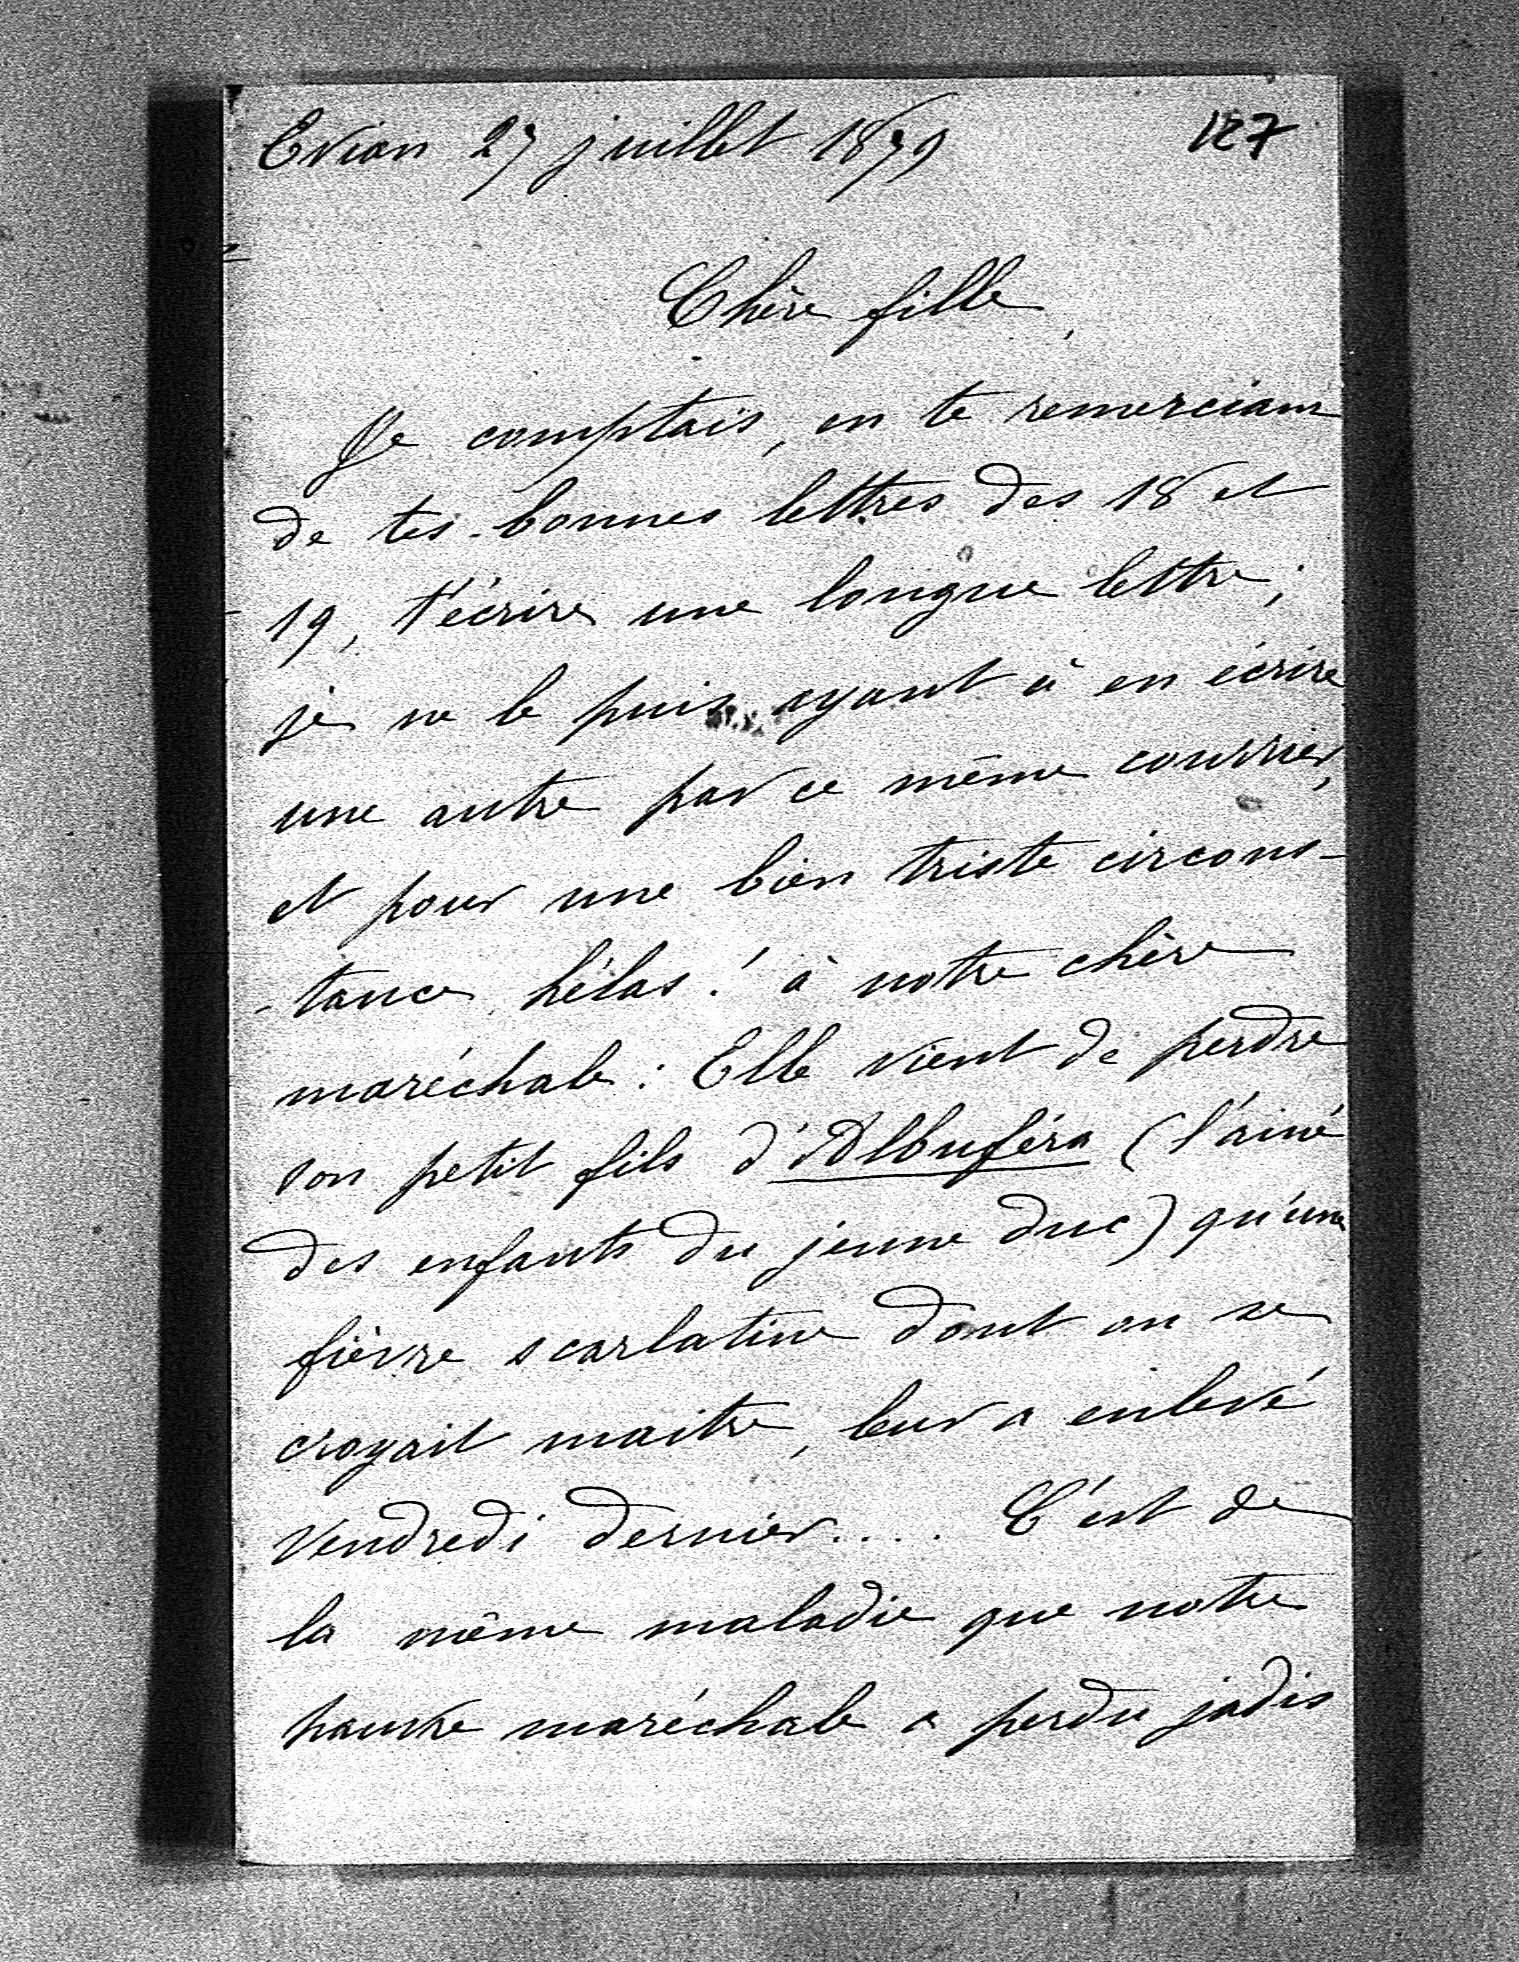 Evian 27 juillet 1879
127
Chère fille,
Je comptais, en te remerciant
de tes bonnes lettres des 18 et
19, t'écrire une longue lettre;
je ne le puis ayant à en écrire
une autre par ce même courrier,
et pour une bien triste circons-
-tance hélas! à notre chère
maréchale: Elle vient de perdre
son petit fils d'Albuféra (l'ainé
des enfants du jeune duc) qu'une
fièvre scarlatine dont on se
croyait maitre, leur a enlevé
vendredi dernier.... C'est de
la même maladie que notre
pauvre maréchale a perdu jadis